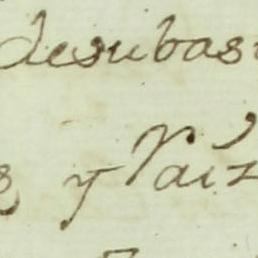 desubas
y Raiz